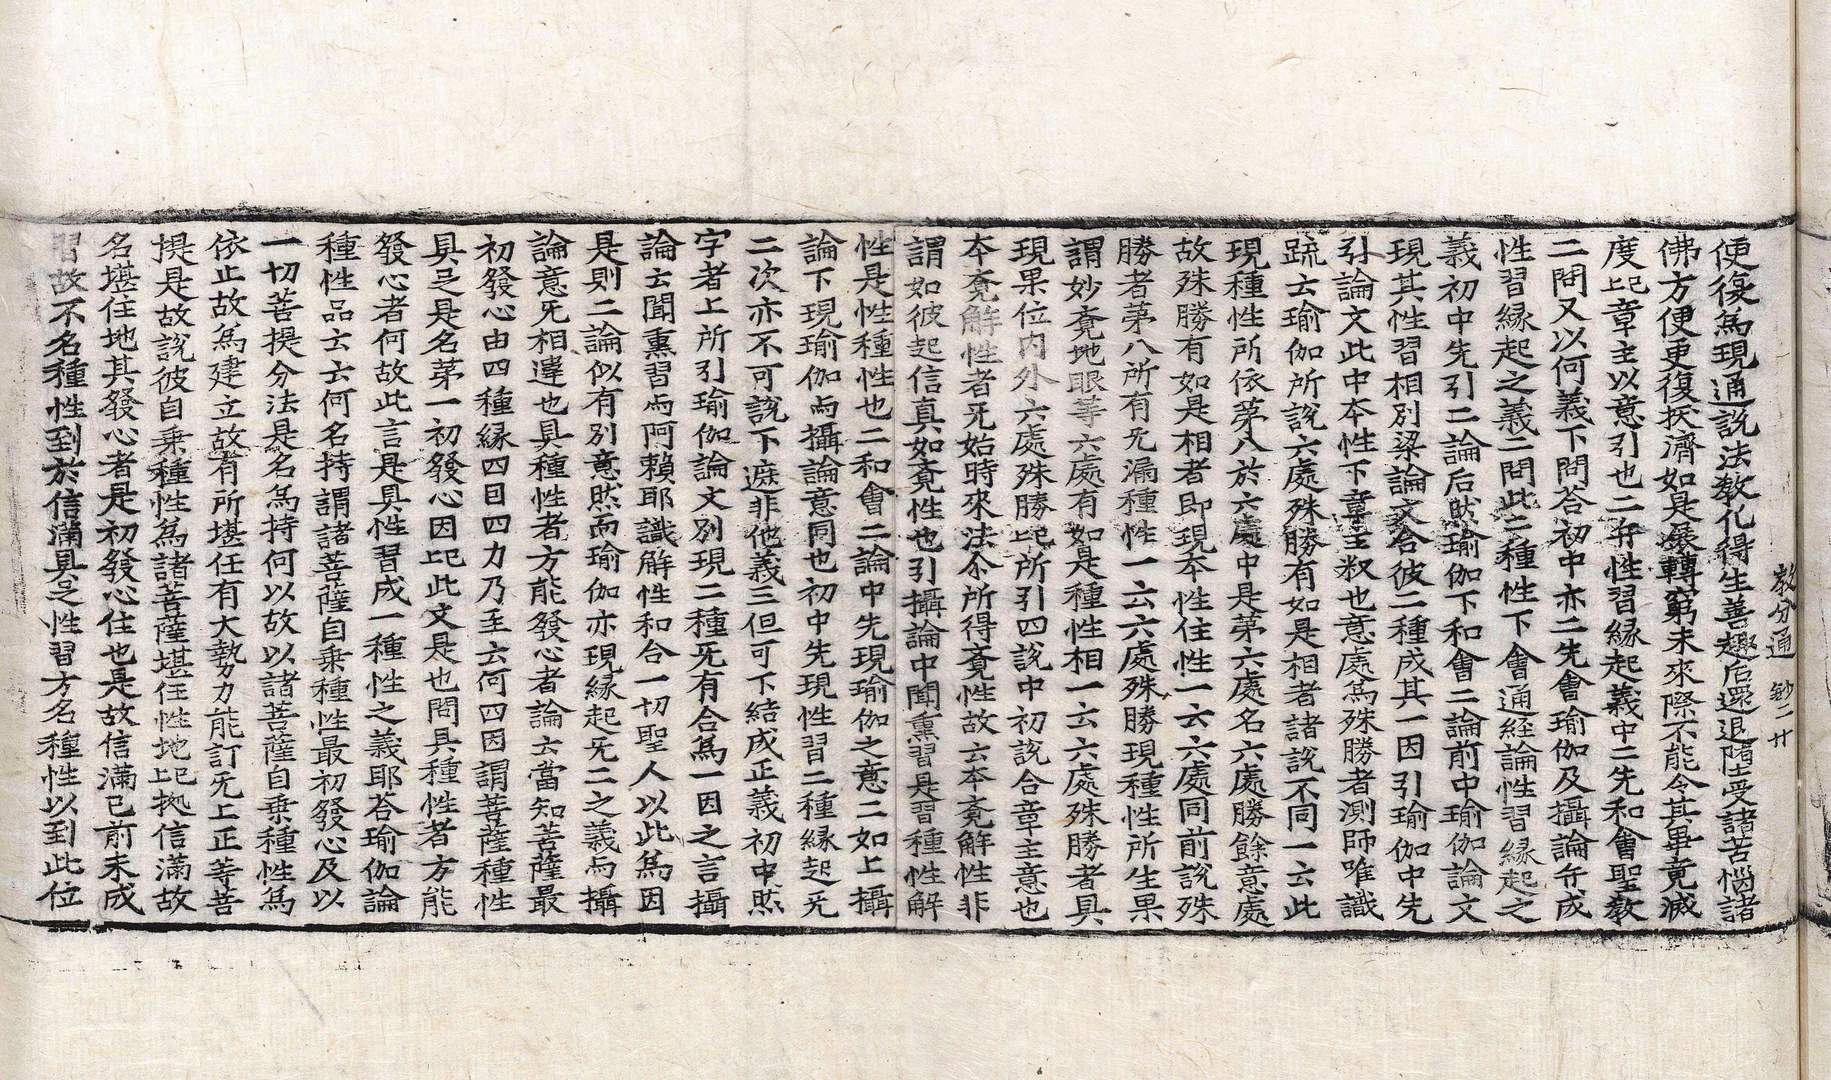 教分通 鈔二 廿
便復爲現通說法教化得生善趣后還退墮受諸苦惱諸
佛方便更復扶濟如是展轉窮未來際不能令其畢竟滅
度此章主以意引也二弁性習縁起義中二先和會聖教
二問又以何義下問荅初中亦二先會瑜伽及攝論弁成
性習縁起之義二問此二種性下會通経論性習縁起之
義初中先引二論后然瑜伽下和會二論前中瑜伽論文
現其性習相別梁論文合彼二種成其一因引瑜伽中先
引論文此中夲性下章主叙也意處爲殊勝者測師唯識
䟽云瑜伽所說六處殊勝有如是相者諸說不同一云此
現種性所依苐八於六處中是苐六處名六處勝餘意處
故殊勝有如是相者即現夲性住性一云六處同前說殊
勝者苐八所有旡漏種性一云六處殊勝現種性所生果
謂妙竟地眼等六處有如是種性相一云六處殊勝者具
現果位内外六處殊勝此所引四說中初說合章主意也
夲竟解性者旡始時來法尒所得竟性故云夲竟解性非
謂如彼起信真如竟性也引攝論中聞熏習是習種性解
性是性種性也二和會二論中先現瑜伽之意二如上攝
論下現瑜伽与攝論意同也初中先現性習二種縁起旡
二次亦不可說下遮非他義三但可下結成正義初中然
字者上所引瑜伽論文別現二種旡有合爲一因之言攝
論云聞熏習与阿賴耶識解性和合一切聖人以此爲因
是則二論似有別意然而瑜伽亦現縁起旡二之義与攝
論意旡相違也具種性者方能發心者論云當知菩薩最
初發心由四種縁四因四力乃至云何四因謂菩薩種性
具足是名苐一初發心因此此文是也問具種性者方能
發心者何故此言是具性習成一種性之義耶荅瑜伽論
種性品云云何名持謂諸菩薩自乗種性最初發心及以
一切菩提分法是名爲持何以故以諸菩薩自乗種性爲
依止故爲建立故有所堪任有大勢力能訂旡上正等菩
提是故說彼自乗種性爲諸菩薩堪任性地此㨿信滿故
名堪住地其發心者是初發心住也是故信滿已前未成
習故不名種性到於信滿具足性習方名種性以到此位